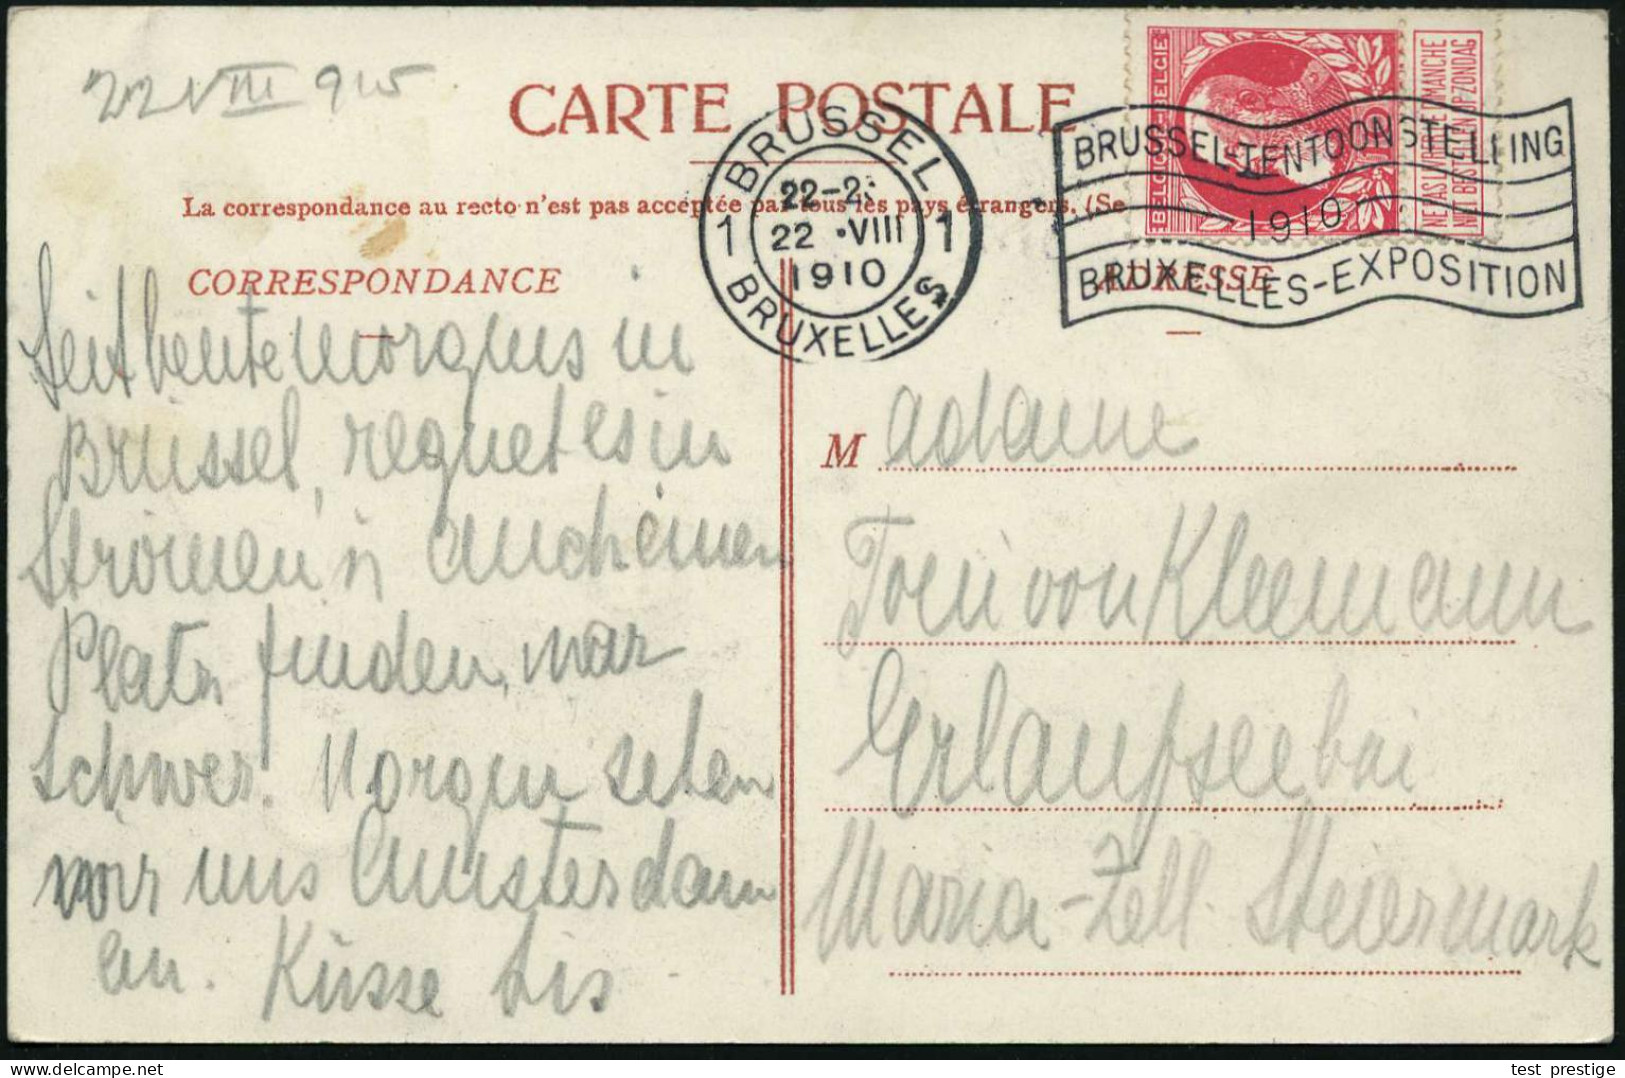 22 VIII 915
CARTE POSTALE
La correspondance au recto n'est pas acceptée par tous les pays étrangers. (Se
BRUSSEL
22-2
1 22 VIII 1
1910
BRUXELLES
BRUSSEL-TENTOONSTELLING
1910
BRUXELLES-EXPOSITION
BELGIQUE BELGIE
NE PAS LIVRER LE DIMANCHE
NIET BESTELLEN OP ZONDAG
CORRESPONDANCE
ADRESSE
Seit heute morgens in
Brüssel, regnet es in
Strömen u auch einen
Platz finden, war
schwer. Morgen sehen
wir uns Amsterdam
an. Küsse Lis
Madame
Toni von Kleemann
Erlaufsee bei
Maria-Zell Steiermark
test prestige